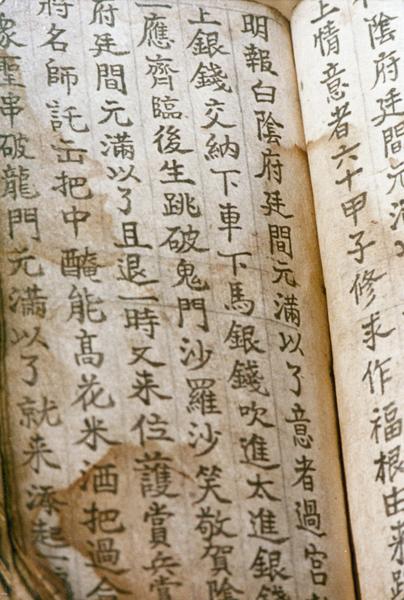 陰府廷間元
上情意者六十甲子修求作福根由來
明報白陰府廷間元滿以了意者過宮
上銀錢交納下車下馬銀錢吹進太進銀錢
一應齊臨後生跳破鬼門沙羅沙笑敬賀陰
府廷間元滿以了且退一時又来位護賞兵賞
將名師託缶把中醃能髙花米洒把過
衆聖串破龍門元滿以了就来添起